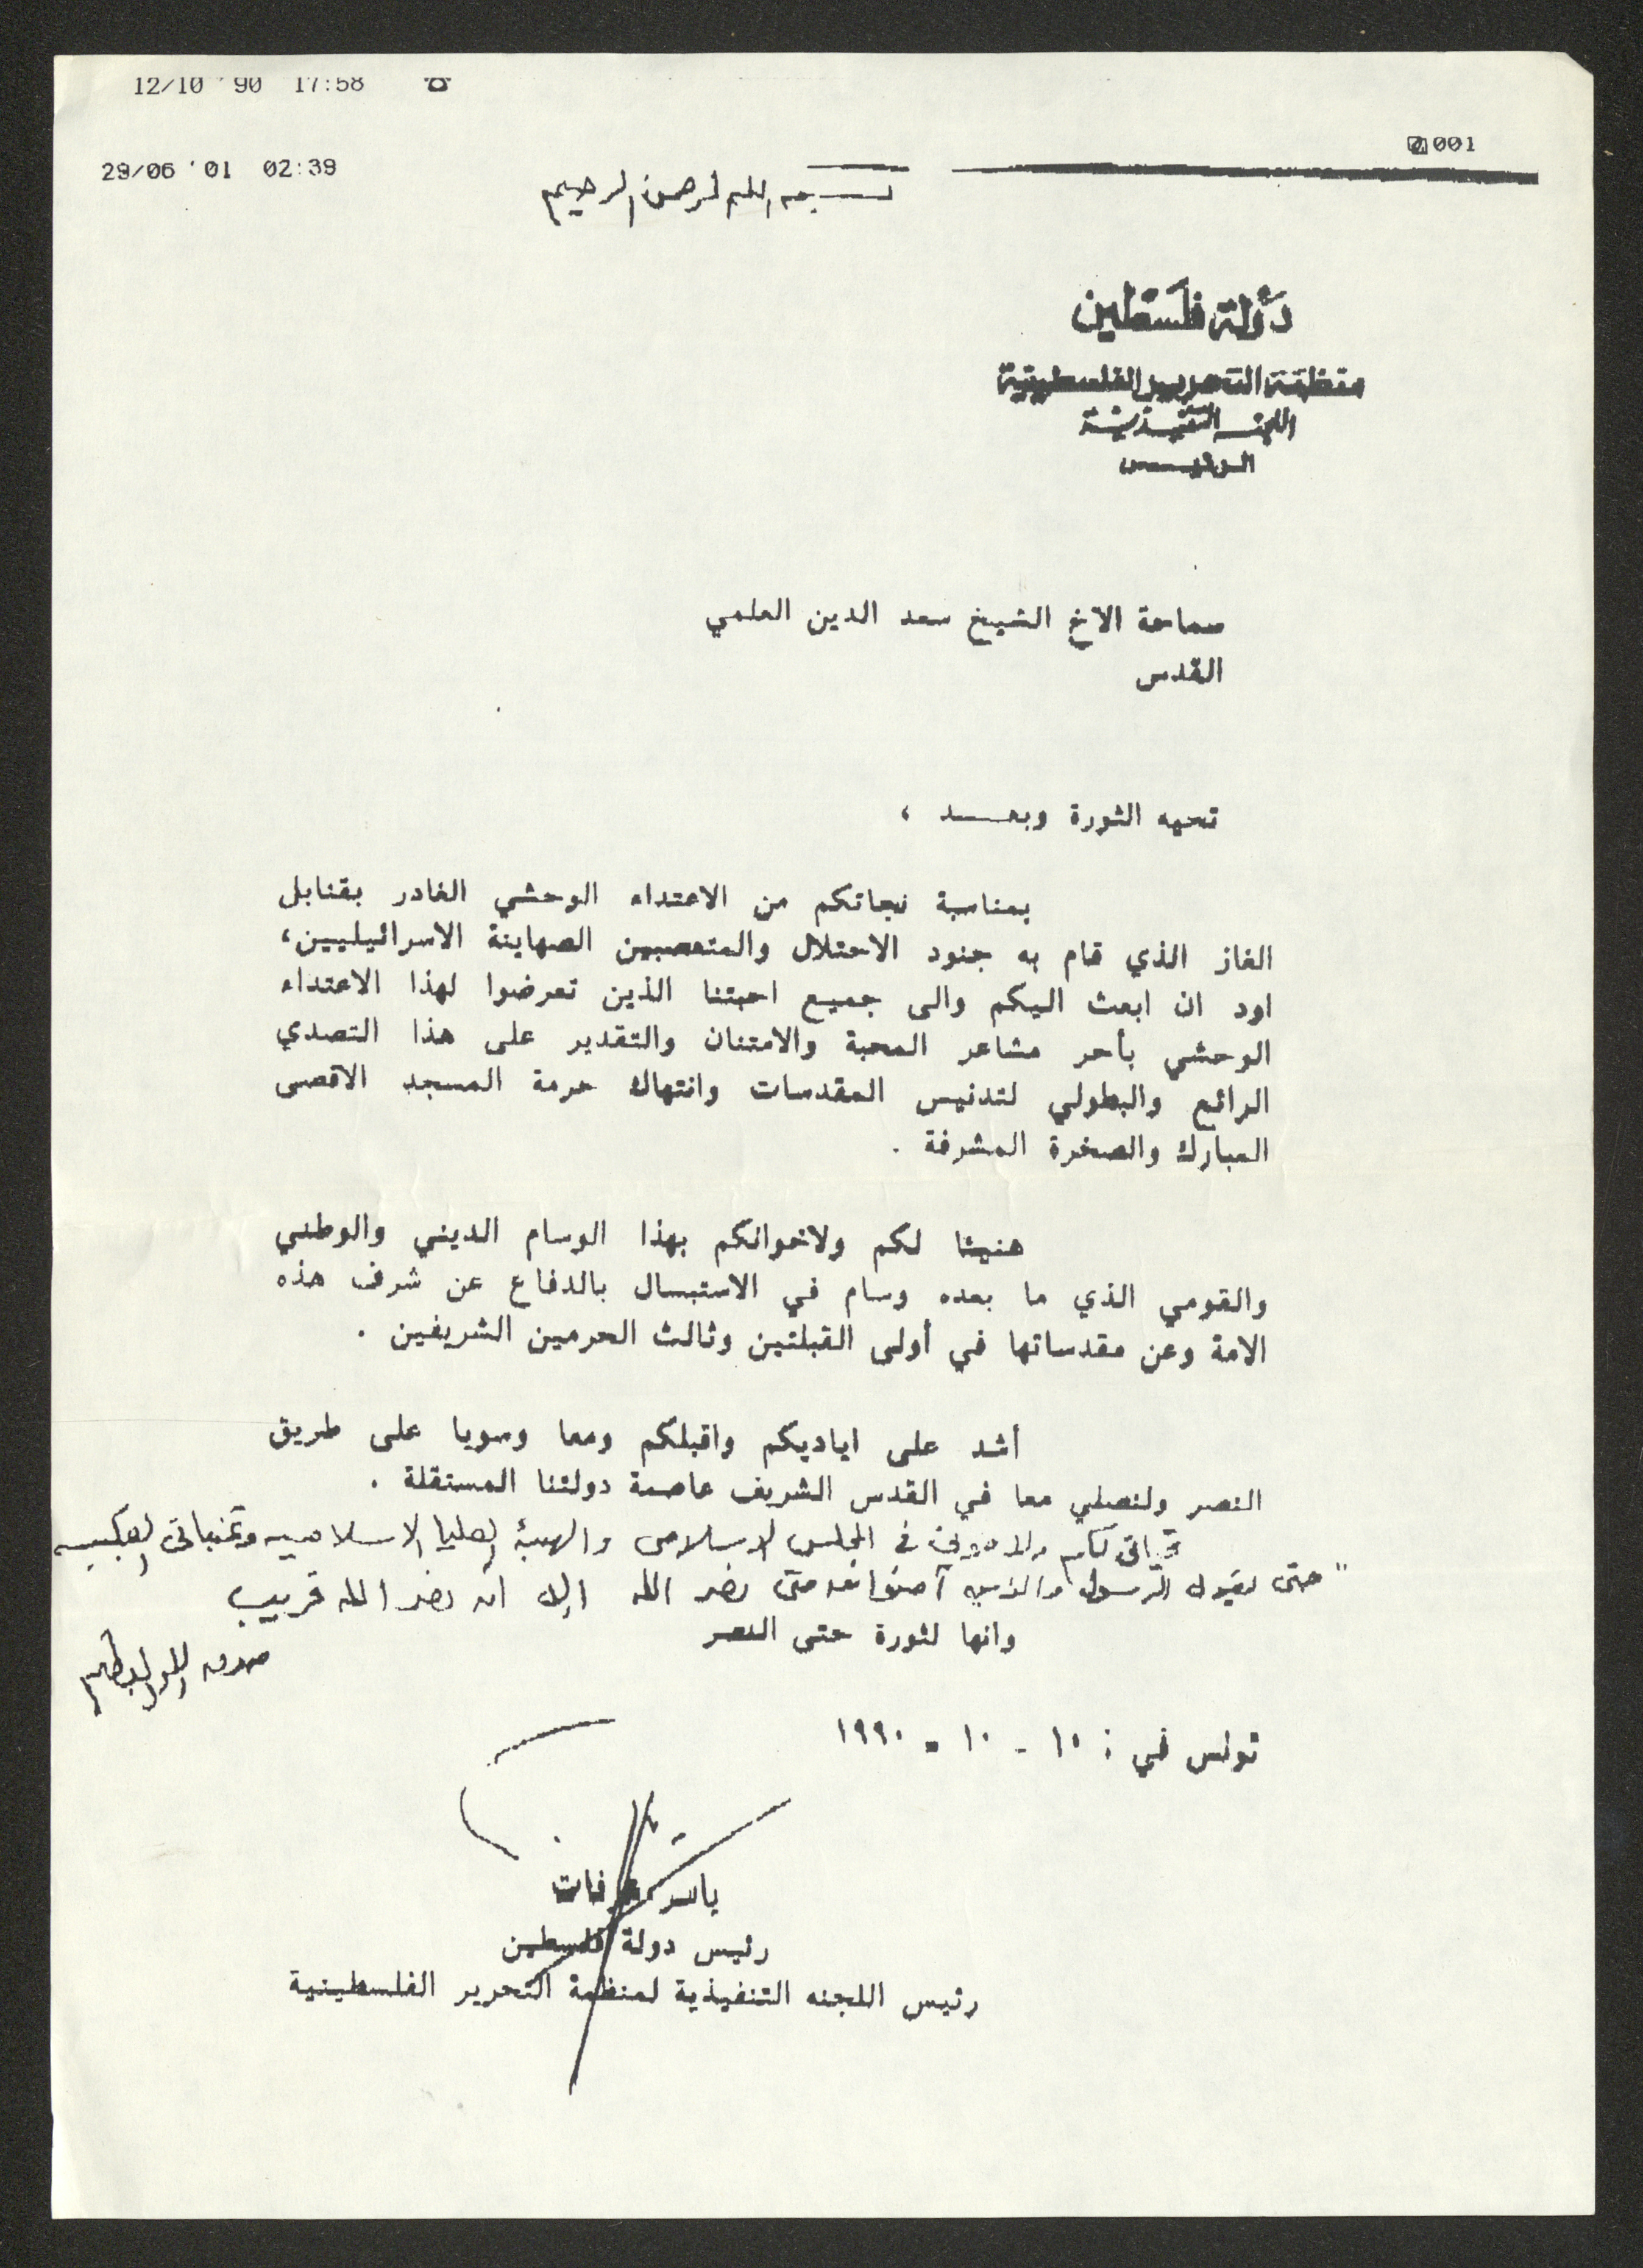 12/10 '90 17:58
001
29/06 '01 02:39
بسم الله الرحمن الرحيم
دولة فلسطين
منظمة التحرير الفلسطينية
اللجنة التنفيذية
الرئيس
سماحة الاخ الشيخ سعد الدين العلمي
القدس
تحيه الثورة وبعــــد ،
بمناسبة نجاتكم من الاعتداء الوحشي الغادر بقنابل
الغاز الذي قام به جنود الاحتلال والمتعصبين الصهاينة الاسرائيليين،
اود ان ابعث اليكم والى جميع احبتنا الذين تعرضوا لهذا الاعتداء
الوحشي بأحر مشاعر المحبة والامتنان والتقدير على هذا التصدي
الرائع والبطولي لتدنيس المقدسات وانتهاك حرمة المسجد الاقصى
المبارك والصخرة المشرفة .
هنيئا لكم ولاخوانكم بهذا الوسام الديني والوطني
والقومي الذي ما بعده وسام في الاستبسال بالدفاع عن شرف هذه
الامة وعن مقدساتها في أولى القبلتين وثالث الحرمين الشريفين .
أشد على اياديكم واقبلكم ومعا وسويا على طريق
النصر ولنصلي معا في القدس الشريف عاصمة دولتنا المستقلة .
تحياتى لكم في المجلس الاسلامى والهيئة العليا الاسلاميه وتمنياتى
" حتى يقول الرسول والذين آمنوا معه متى نصر الله الا ان نصر الله قريب
وانها لثورة حتى النصر
صدق الله العظيم
تونس في : ١٠ - ١٠ - ١٩٩٠
ياسر عرفات
رئيس دولة فلسطين
رئيس اللجنه التنفيذية لمنظمة التحرير الفلسطينية